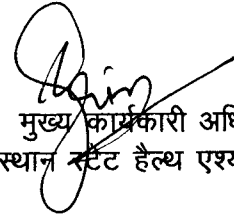 मुख्य कार्यकारी अधि
स्थान स्टेट हैल्थ एश्य